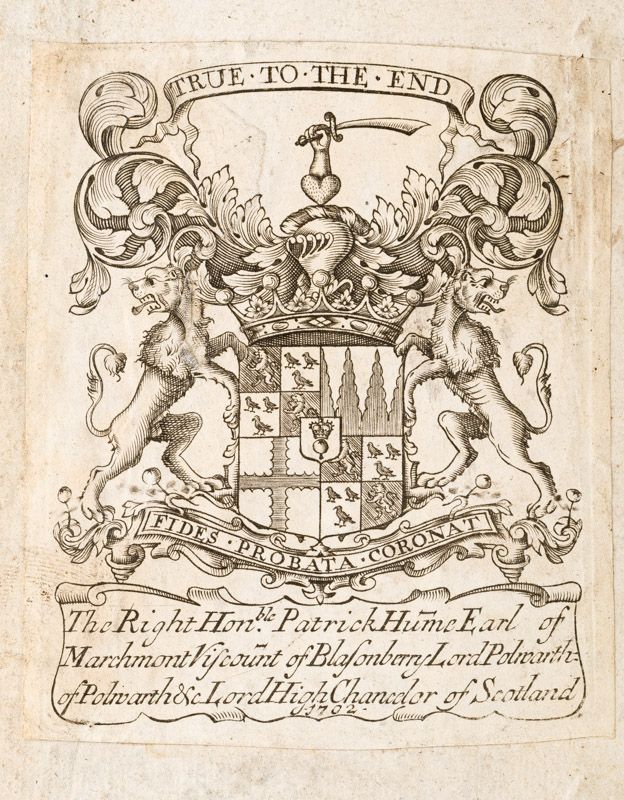 TRUE · TO · THE · END
FIDES · PROBATA · CORONAT
The Right Hon.ble Patrick Hum̅e Earl of
Marchmont Viſcoun̅t of Blaſonberry Lord Polwarth-
of Polwarth &c Lord High Chancelor of Scotland
1702